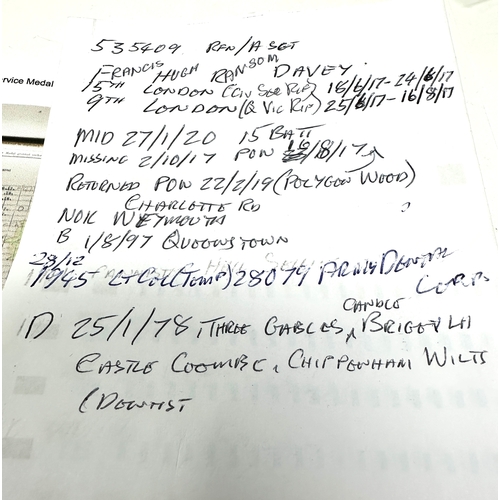 535409 RFN/A SGT
FRANCIS HUGH RANSOM DAVEY.
15TH LONDON (CIV SER RIF) 16/6/17-24/6/17
9TH LONDON (Q VIC RIF) 25/6/17-16/8/17
ervice Medal
MID 27/1/20 15 BATT
MISSING 2/10/17 POW 16/8/17
RETURNED POW 22/2/19 (POLYGON WOOD)
CHARLOTTE RD
NOK WEYMOUTH
B 1/8/97 QUEENSTOWN
29/12
1945 LT COL (TEMP) 28079 ARMY DENTAL
CORPS
CANDLE
D 25/1/78, THREE GABLES, BRIGEVLH
CASTLE COOMBE, CHIPPENHAM WILTS
(DENTIST